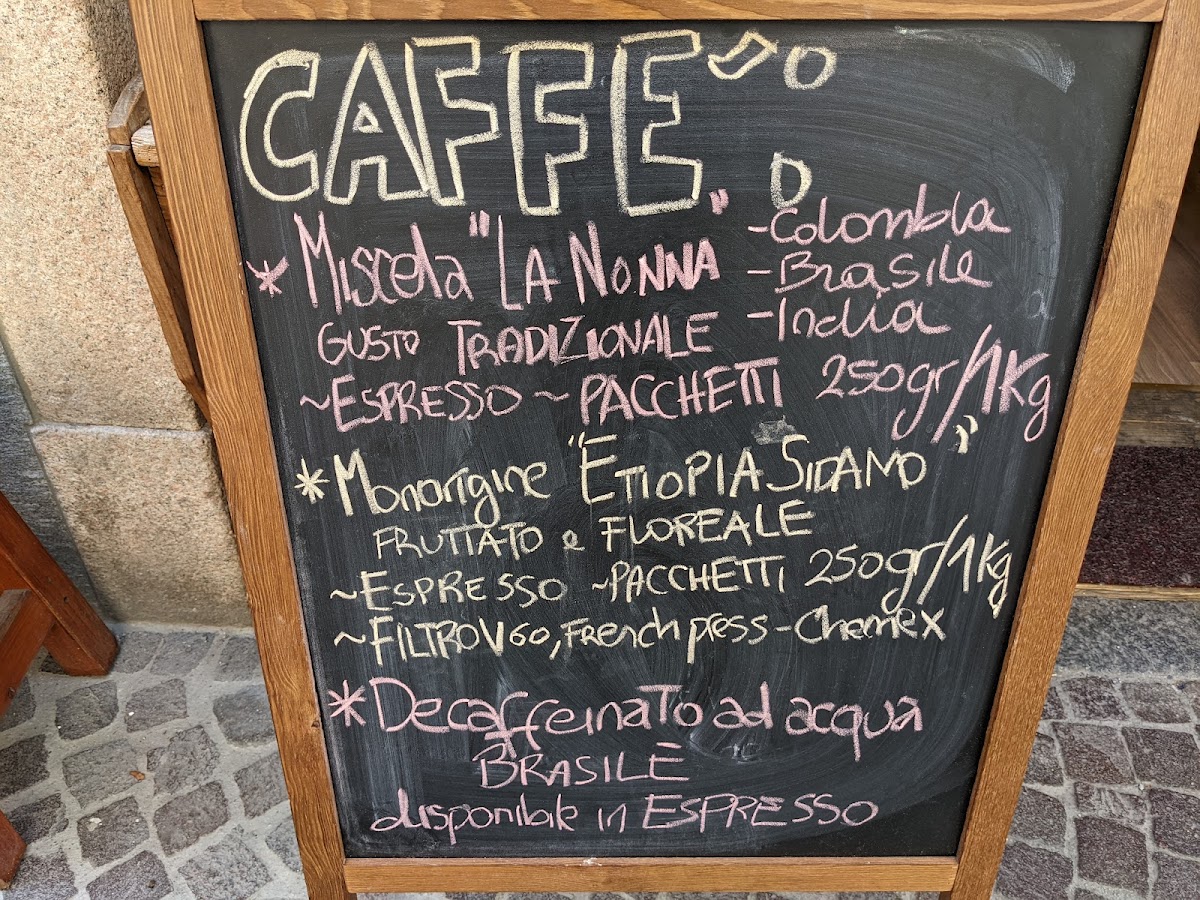 CAFFE':
* Miscela "LA NONNA"
- Colombia
- Brasile
- India
GUSTO TRADIZIONALE
~ESPRESSO ~ PACCHETTI 250gr/1Kg
* Monorigine "ETIOPIA SIDAMO"
FRUTTATO e FLOREALE
~ESPRESSO ~PACCHETTI 250gr/1Kg
~FILTRO V60, French press - Chemex
* Decaffeinato ad acqua
BRASILE
disponibile in ESPRESSO